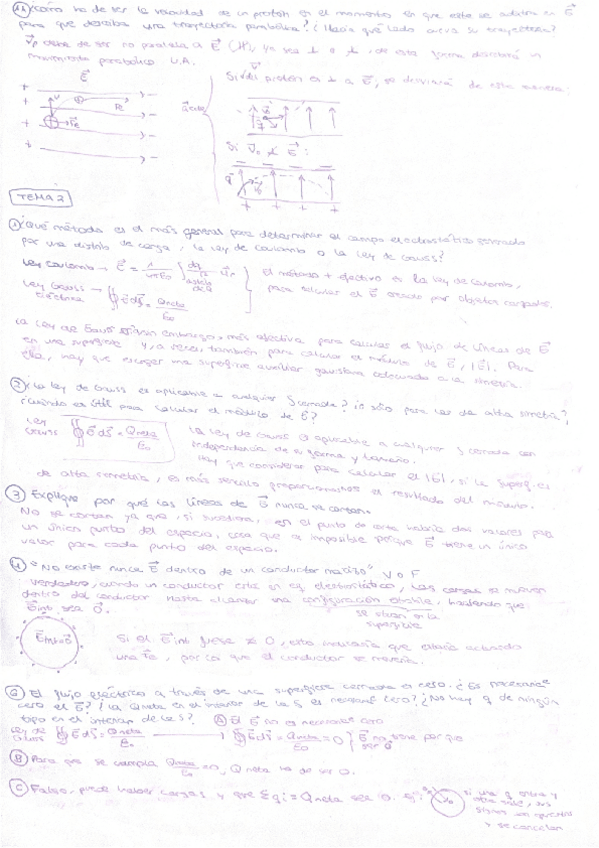 ¿Cómo ha de ser la velocidad de un protón en el momento en que este se adentra en E⃗
para que describa una trayectoria parabólica? ¿Hacia qué lado curva su trayectoria?
V⃗ₚ debe de ser no paralela a E⃗, ya sea ⊥ o, de esta forma describirá un
movimiento parabólico U.A.
Si protón es ⊥ a E⃗, se desviará de esta manera:
E⃗
Si V⃗₀ E⃗:
TEMA 2
① ¿Qué método es el más general para determinar el campo electrostático generado
por una distrib de carga, la ley de Coulomb o la ley de Gauss?
Ley Coulomb →
El método + efectivo es la ley de Coulomb,
para calcular el E⃗ creado por objetos cargados.
Ley Gauss → ∯ E⃗ dS⃗ = Qneta/ε₀
La Ley de Gauss es, sin embargo, más efectiva para calcular el flujo de líneas de E⃗
en una superficie y, a veces, también para calcular el módulo de E⃗, |E⃗|. Para
ello, hay que escoger una superficie auxiliar gaussiana adecuada a la simetría.
② ¿La ley de Gauss es aplicable a cualquier S cerrada? ¿o sólo para las de alta simetría?
¿Cuándo es útil para calcular el módulo de E⃗?
Ley Gauss ∯ E⃗ dS⃗ = Qneta/ε₀
La ley de Gauss es aplicable a cualquier S cerrada con
independencia de su forma y tamaño.
Hay que considerar para calcular el |E⃗|, si la superf. es
de alta simetría, es más sencillo proporcionarnos el resultado del módulo.
③ Explique por qué las líneas de E⃗ nunca se cortan.
No se cortan ya que, si sucediera, en el punto de corte habría dos valores para
un único punto del espacio, cosa que es imposible porque E⃗ tiene un único
valor para cada punto del espacio.
④ "No existe nunca E⃗ dentro de un conductor macizo" V o F
Verdadero, cuando un conductor está en eq electrostático, las cargas se mueven
dentro del conductor hasta alcanzar una configuración estable, haciendo que
E⃗int sea 0⃗.
se sitúan en la
superficie
E⃗int=0⃗
Si el E⃗int fuese ≠ 0, esto indicaría que estaría actuando
una F⃗e, por lo que el conductor se movería.
⑥ El flujo eléctrico a través de una superficie cerrada es cero. ¿Es necesariamente
cero el E⃗? ¿La Qneta en el interior de la S es necesar. cero? ¿No hay q de ningún
tipo en el interior de la S?
Ⓐ El E⃗ no es necesar. cero
Ley de Gauss ∯ E⃗ dS⃗ = Qneta/ε₀ → ∯ E⃗ dS⃗ = Qneta/ε₀ = 0 } E⃗ no tiene por qué ser 0⃗
Ⓑ Para que se cumpla Qneta/ε₀ = 0, Qneta ha de ser 0.
Ⓒ Falso, puede haber cargas, y que Σqi = Qneta sea 0.
si una q entra y
otra sale, sus
signos son opuestos
y se cancelan